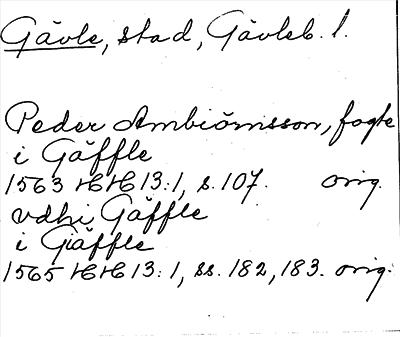 Gävle, stad, Gävleb. l.
Peder Ambiörnsson, fogte
i Gäffle
1563 HH 13:1, s. 107. orig.
vdhi Gäffle
i Gäffle
1565 HH 13:1, ss. 182, 183. orig.